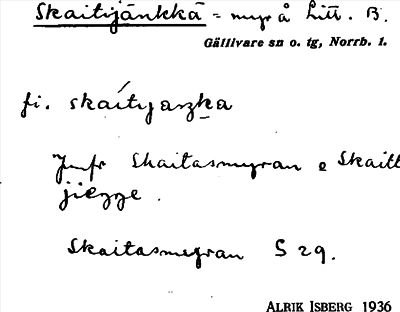 Skaitijänkkä = myr å Litt. B.
Gällivare sn o. tg, Norrb. l.
fi. skaitijaŋka
Jmfr Skaitasmyran o Skaitt
jiegge.
Skaitasmyran S 29.
ALRIK ISBERG 1936